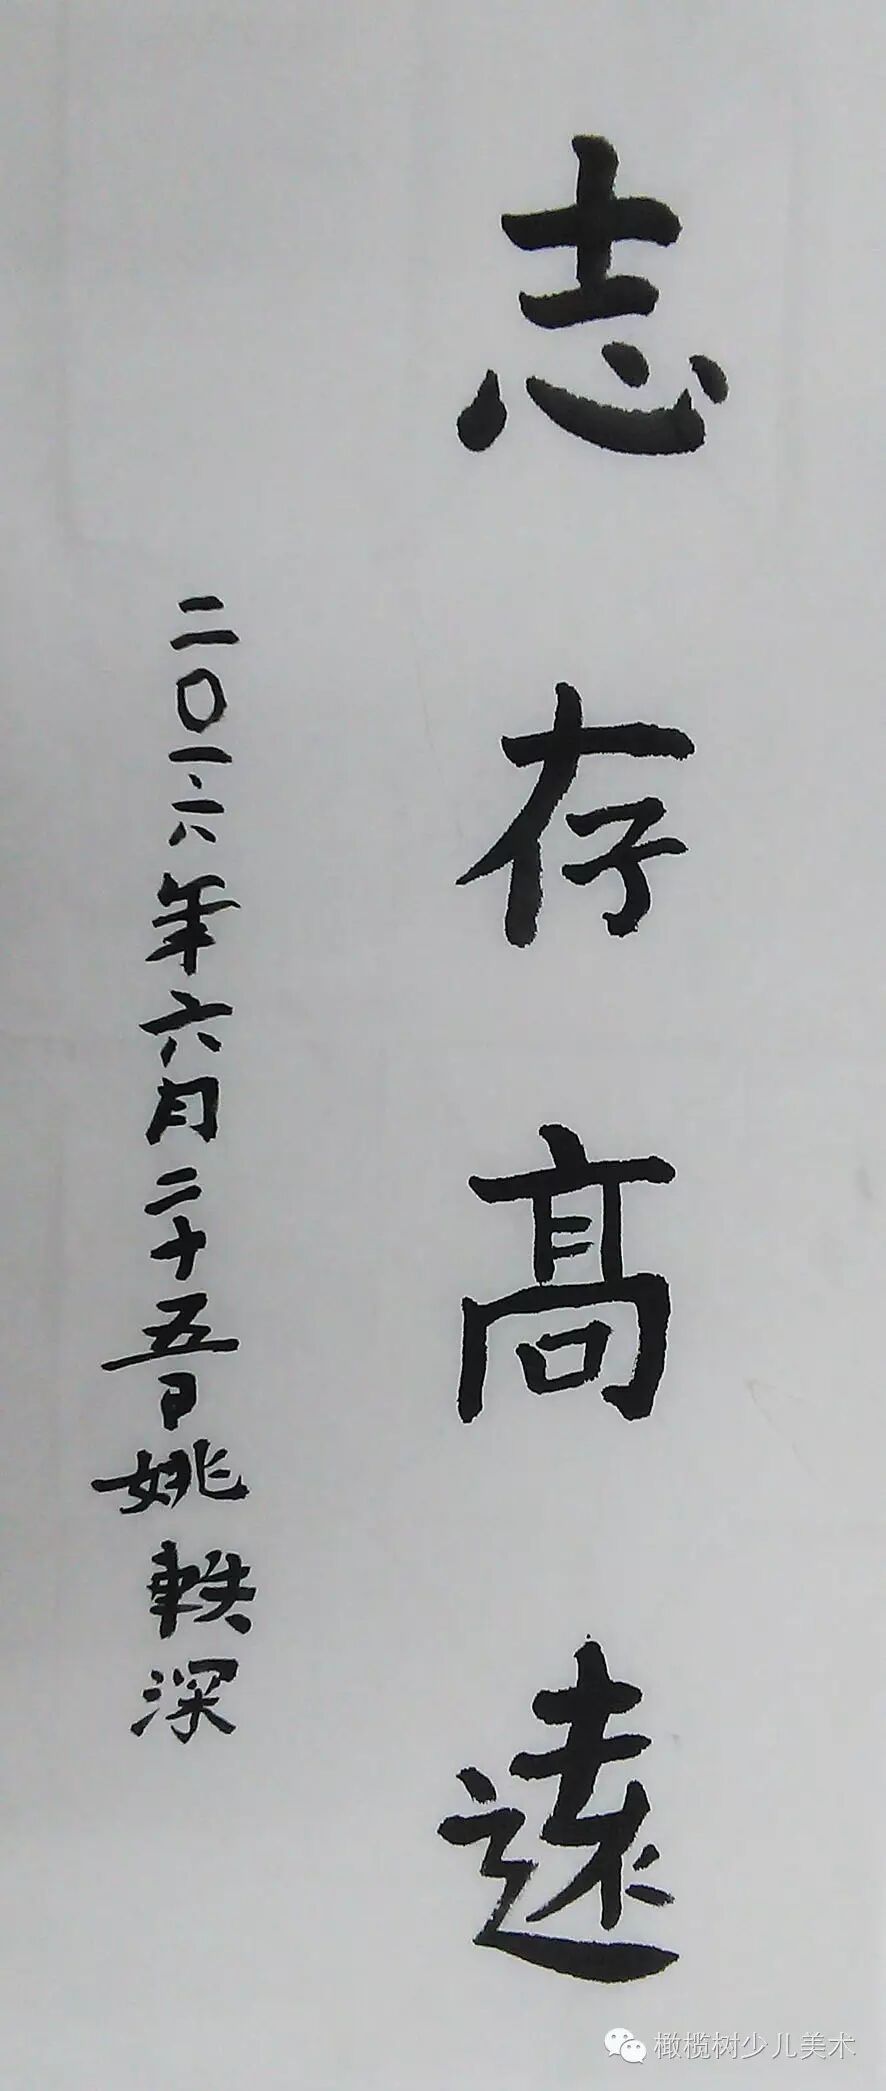 志存髙遠
二〇一六年六月二十五日姚軼深
橄榄树少儿美术